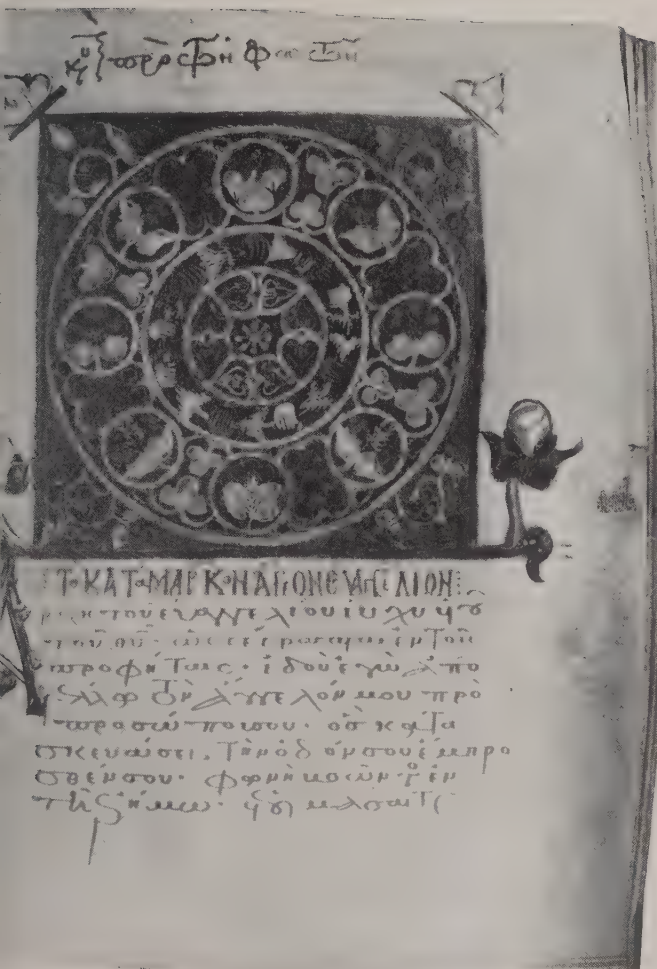 κυ πρὸ τῶν φώτων
ΤΟ ΚΑΤΑ ΜΑΡΚΟΝ ΑΓΙΟΝ ΕΥΑΓΓΕΛΙΟΝ
τοῦ εὐαγγελίου ιυ χυ υυ
τοῦ θυ· ὡς γέγραπται ἐν τοῖ
προφήταις· ἰδοὺ ἐγὼ ἀπο
στέλλω τὸν ἄγγελόν μου πρὸ
προσώπου σου· ὃς κατα
σκευάσει τὴν ὁδόν σου ἔμπρο
σθέν σου· φωνὴ βοῶντος ἐν
τῇ ἐρήμω· ἑτοιμάσατε